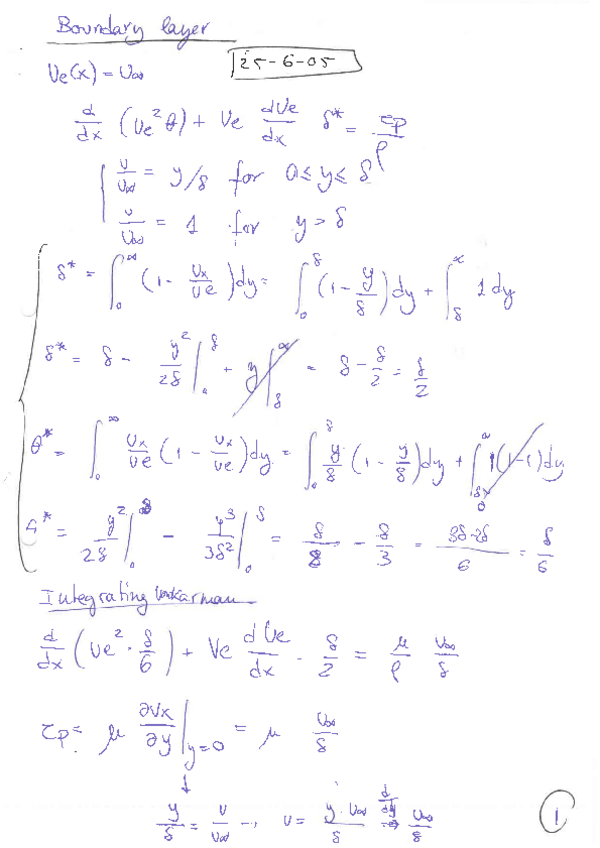 Boundary layer
Ue(x) = U∞
25-6-05
d/dx (Ue² θ) + Ue dUe/dx δ* = τp/ρ
u/U∞ = y/δ for 0 ≤ y ≤ δ
u/U∞ = 1 for y > δ
δ* = ∫₀^∞ (1 - Ux/Ue) dy = ∫₀^δ (1 - y/δ) dy + ∫_δ^∞ 1 dy
δ* = δ - y²/2δ |₀^δ + y |_δ^∞ = δ - δ/2 = δ/2
θ* = ∫₀^∞ Ux/Ue (1 - Ux/Ue) dy = ∫₀^δ y/δ (1 - y/δ) dy + ∫_δ^∞ 1(1-1) dy
0
y²/2δ |₀^δ - y³/3δ² |₀^δ = δ/2 - δ/3 = 3δ-2δ/6 = δ/6
Integrating
d/dx (Ue² · δ/6) + Ue dUe/dx · δ/2 = μ/ρ U∞/δ
τp = μ ∂Vx/∂y |y=0 = μ U∞/δ
↓
y/δ = u/U∞ → u = y·U∞/δ d/dy → U∞/δ
1